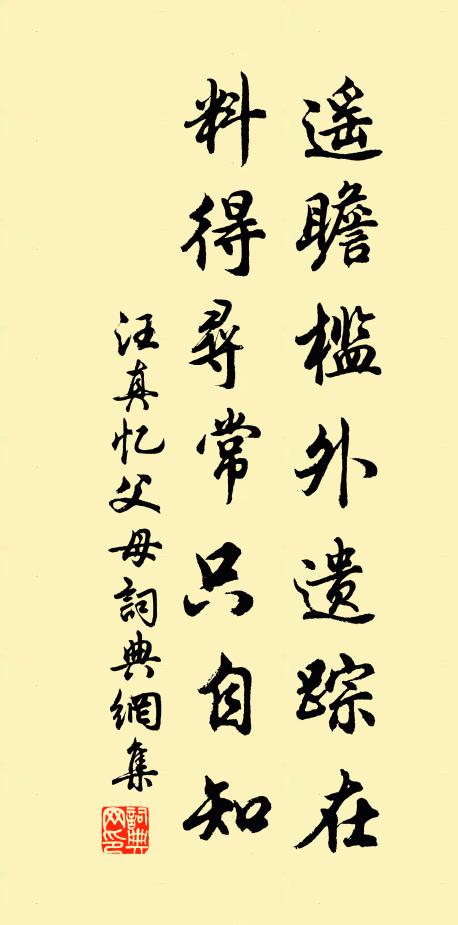 遥瞻槛外遗踪在
料得尋常只自知
汪真忆父母詞典網集
詞典网印